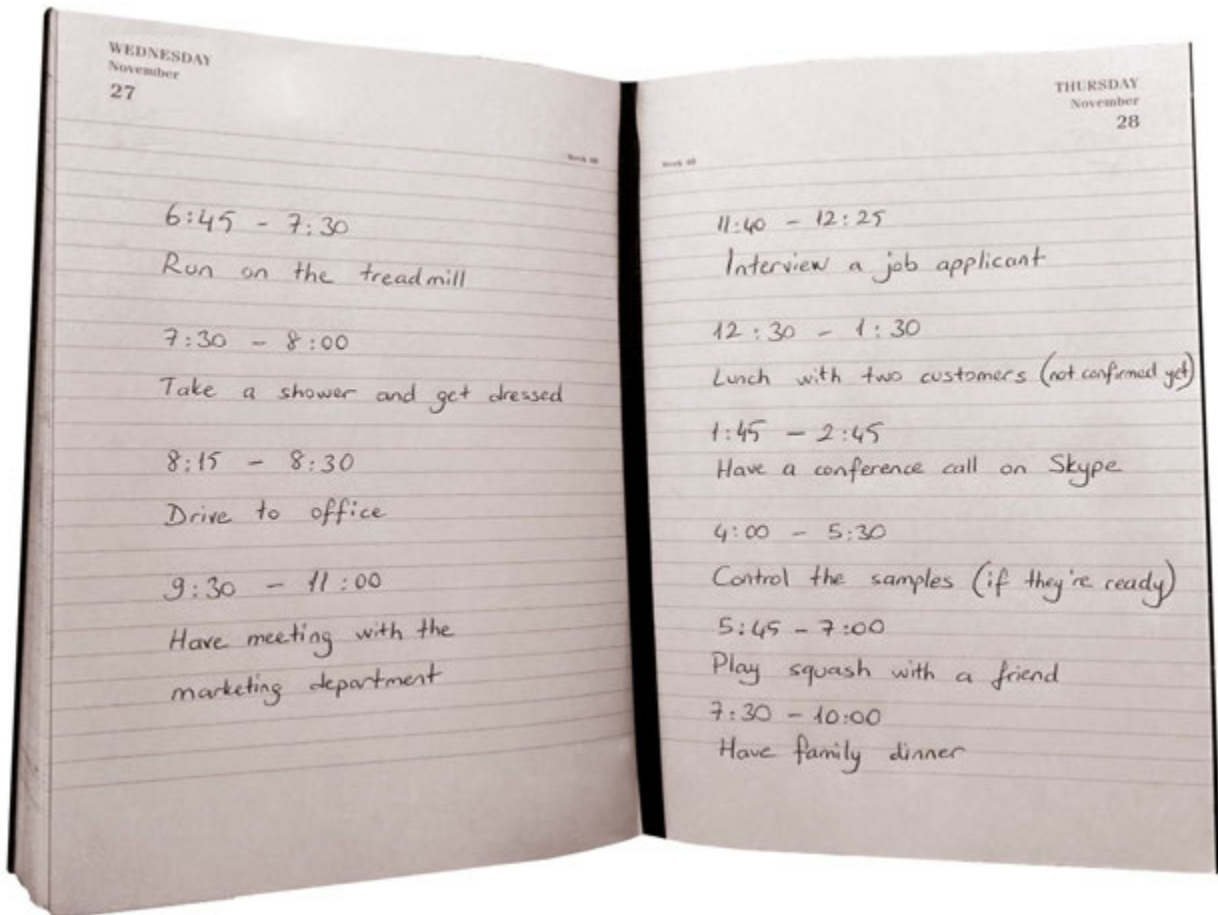 WEDNESDAY
November
27
6:45 - 7:30
Run on the treadmill
7:30 - 8:00
Take a shower and get dressed
8:15 - 8:30
Drive to office
9:30 - 11:00
Have meeting with the
marketing department
THURSDAY
November
28
11:40 - 12:25
Interview a job applicant
12:30 - 1:30
Lunch with two customers (not confirmed yet)
1:45 - 2:45
Have a conference call on Skype
4:00 - 5:30
Control the samples (if they're ready)
5:45 - 7:00
Play squash with a friend
7:30 - 10:00
Have family dinner